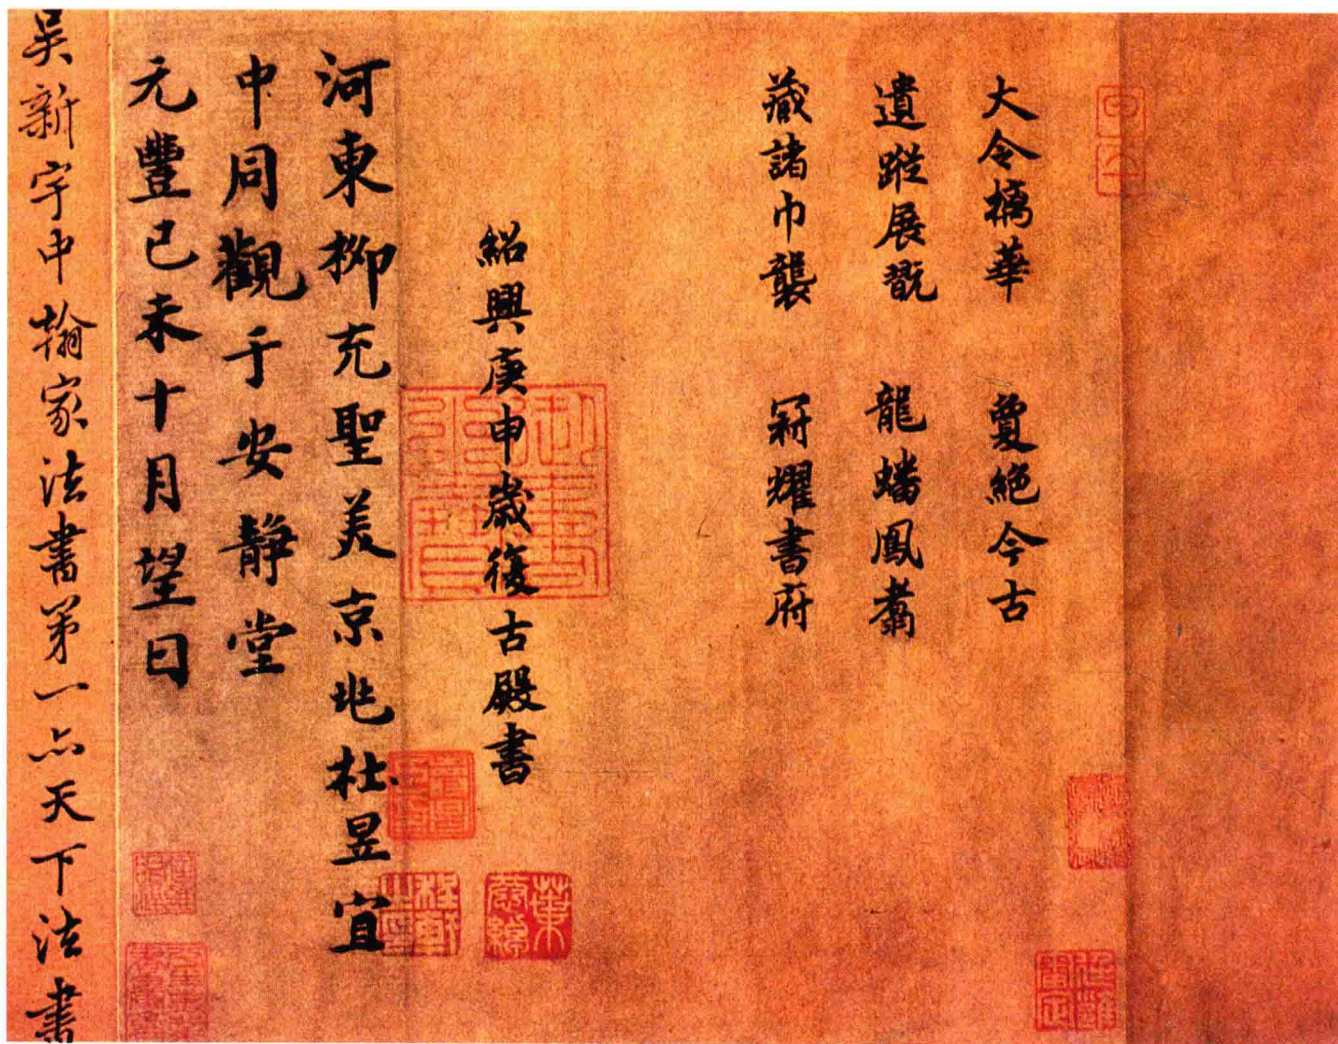 大令摛華 夐絕今古
遺蹤展翫 龍蟠鳳翥
藏諸巾襲 冠耀書府
紹興庚申歲復古殿書
河東柳充聖美京兆杜昱宜
中同觀于安靜堂
元豐己未十月望日
吳新宇中翰家法書第一亦天下法書